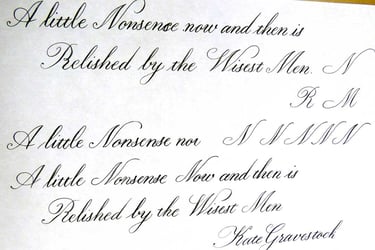 A little Nonsense now and then is
Relished by the Wisest Men. N
R M
A little Nonsense nor N N N N N
A little Nonsense Now and then is
Relished by the Wisest Men
Kate Gravestock